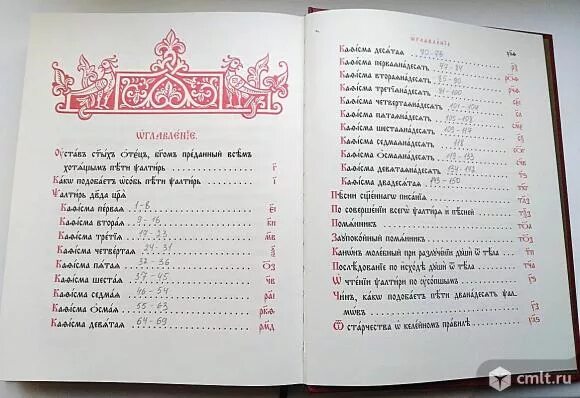 Ѡ҆главле́нїе.
Оу҆ста́въ ст҃ы́хъ ѻ҆те́цъ, бг҃омъ пре́данный всѣ̑мъ
хотѧ́щымъ пѣ́ти ѱалти́рь
Ка́кѡ подоба́етъ ѡ҆со́бь пѣ́ти ѱалти́рь
Ѱалти́рь дв҃да цр҃ѧ̀
Каѳі́сма пе́рваѧ 1-8
Каѳі́сма втора́ѧ 9-16
Каѳі́сма тре́тїѧ 17-23
Каѳі́сма четве́ртаѧ 24-31
Каѳі́сма пѧ́таѧ 32-36
Каѳі́сма шеста́ѧ 37-45
Каѳі́сма седма́ѧ 46-54
Каѳі́сма ѻ҆сма́ѧ 55-63
Каѳі́сма девѧ́таѧ 64-69
Ѡ҆главле́нїе
Каѳі́сма десѧ́таѧ 70-76
Каѳі́сма перваѧна́десѧть 77-84
Каѳі́сма втораѧна́десѧть 85-90
Каѳі́сма третїѧна́десѧть 91-100
Каѳі́сма четвертаѧна́десѧть 101-104
Каѳі́сма пѧтаѧна́десѧть 105-108
Каѳі́сма шестаѧна́десѧть 109-117
Каѳі́сма седмаѧна́десѧть 118
Каѳі́сма ѻ҆смаѧна́десѧть 119-133
Каѳі́сма девѧтаѧна́десѧть 134-142
Каѳі́сма двадесѧ́таѧ 143-150
Пѣ̑сни сщ҃е́ннагѡ писа́нїѧ
По соверше́нїи всегѡ̀ ѱалти́рѧ и҆ пѣ́сней
Помѧ́нникъ
Заупоко́йный помѧ́нникъ
Канѡ́нъ моле́бный при разлꙋче́нїи дꙋшѝ ѿ тѣ́ла
Послѣ́дованїе по и҆схо́дѣ дꙋшѝ ѿ тѣ́ла
Ѡ҆ чте́нїи ѱалти́ри по ᲂу҆со́пшымъ
Чи́нъ, ка́кѡ подоба́етъ пѣ́ти двана́десѧть ѱал-
мѡ́въ
Ѿ ста́рчества ѡ҆ келе́йномъ пра́вилѣ
cmlt.ru